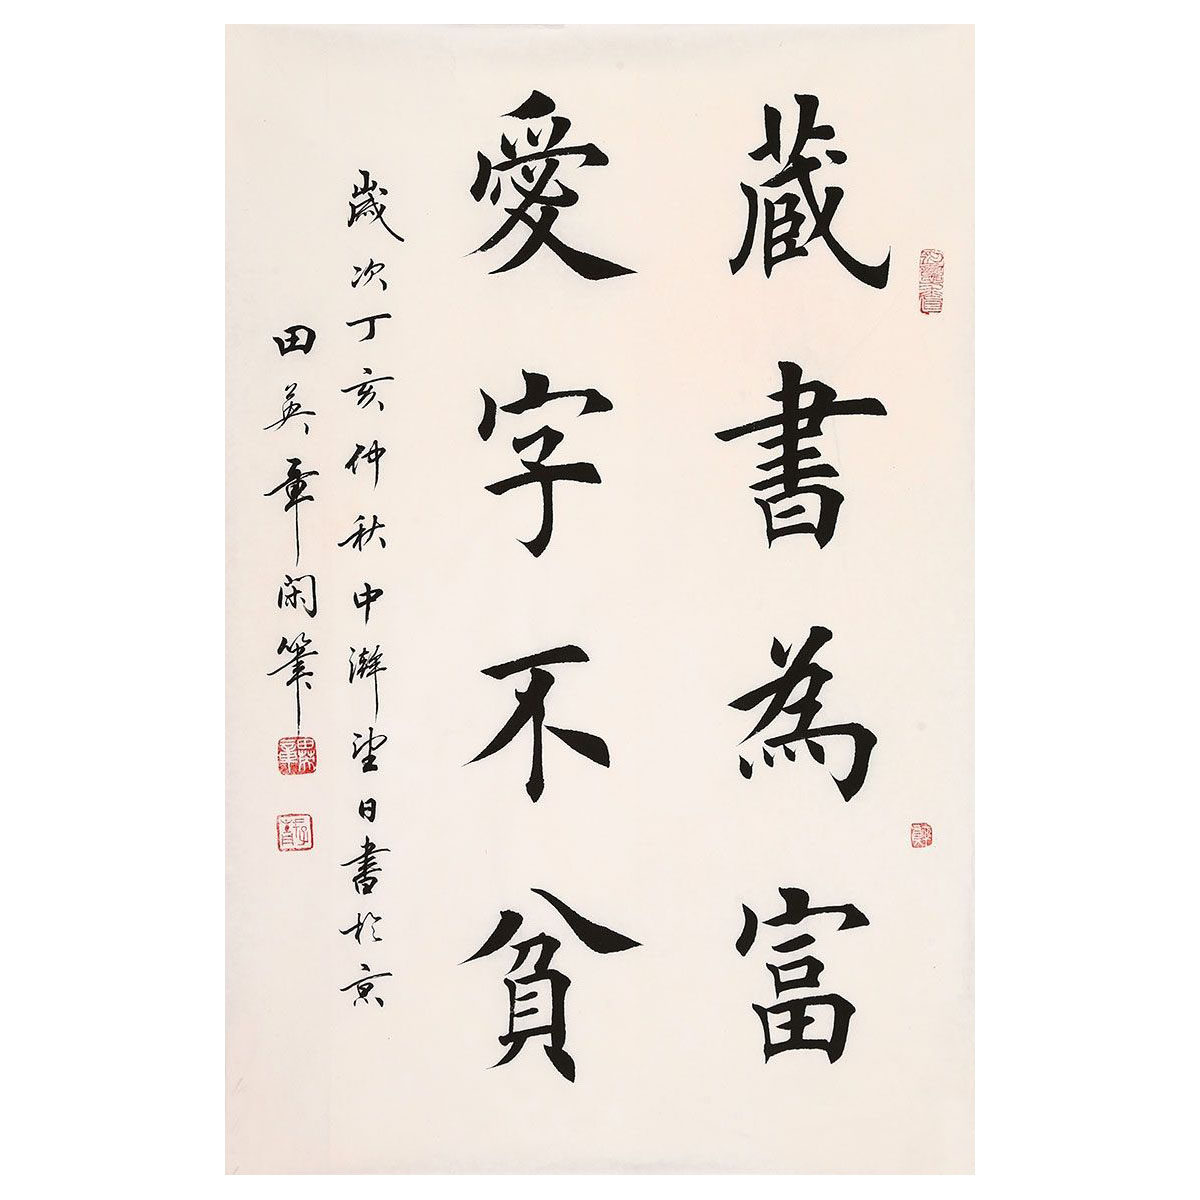 藏書為富
愛字不貧
歲次丁亥仲秋中澣望日書於京
田英章閑筆
田英章